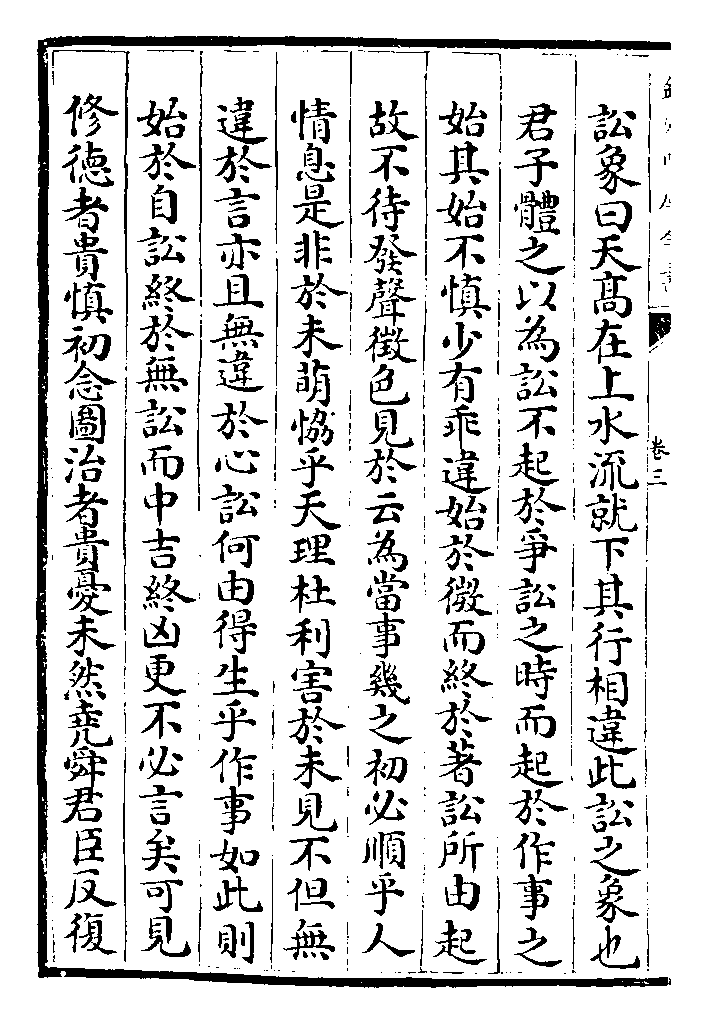 訟象曰天高在上水流就下其行相違此訟之象也
君子體之以為訟不起於爭訟之時而起於作事之
始其始不慎少有乖違始於微而終於著訟所由起
故不待發聲徴色見於云為當事幾之初必順乎人
情息是非於未萌恊乎天理杜利害於未見不但無
違於言亦且無違於心訟何由得生乎作事如此則
始於自訟終於無訟而中吉終凶更不必言矣可見
修德者貴慎初念圖治者貴憂未然堯舜君臣反復
卷三